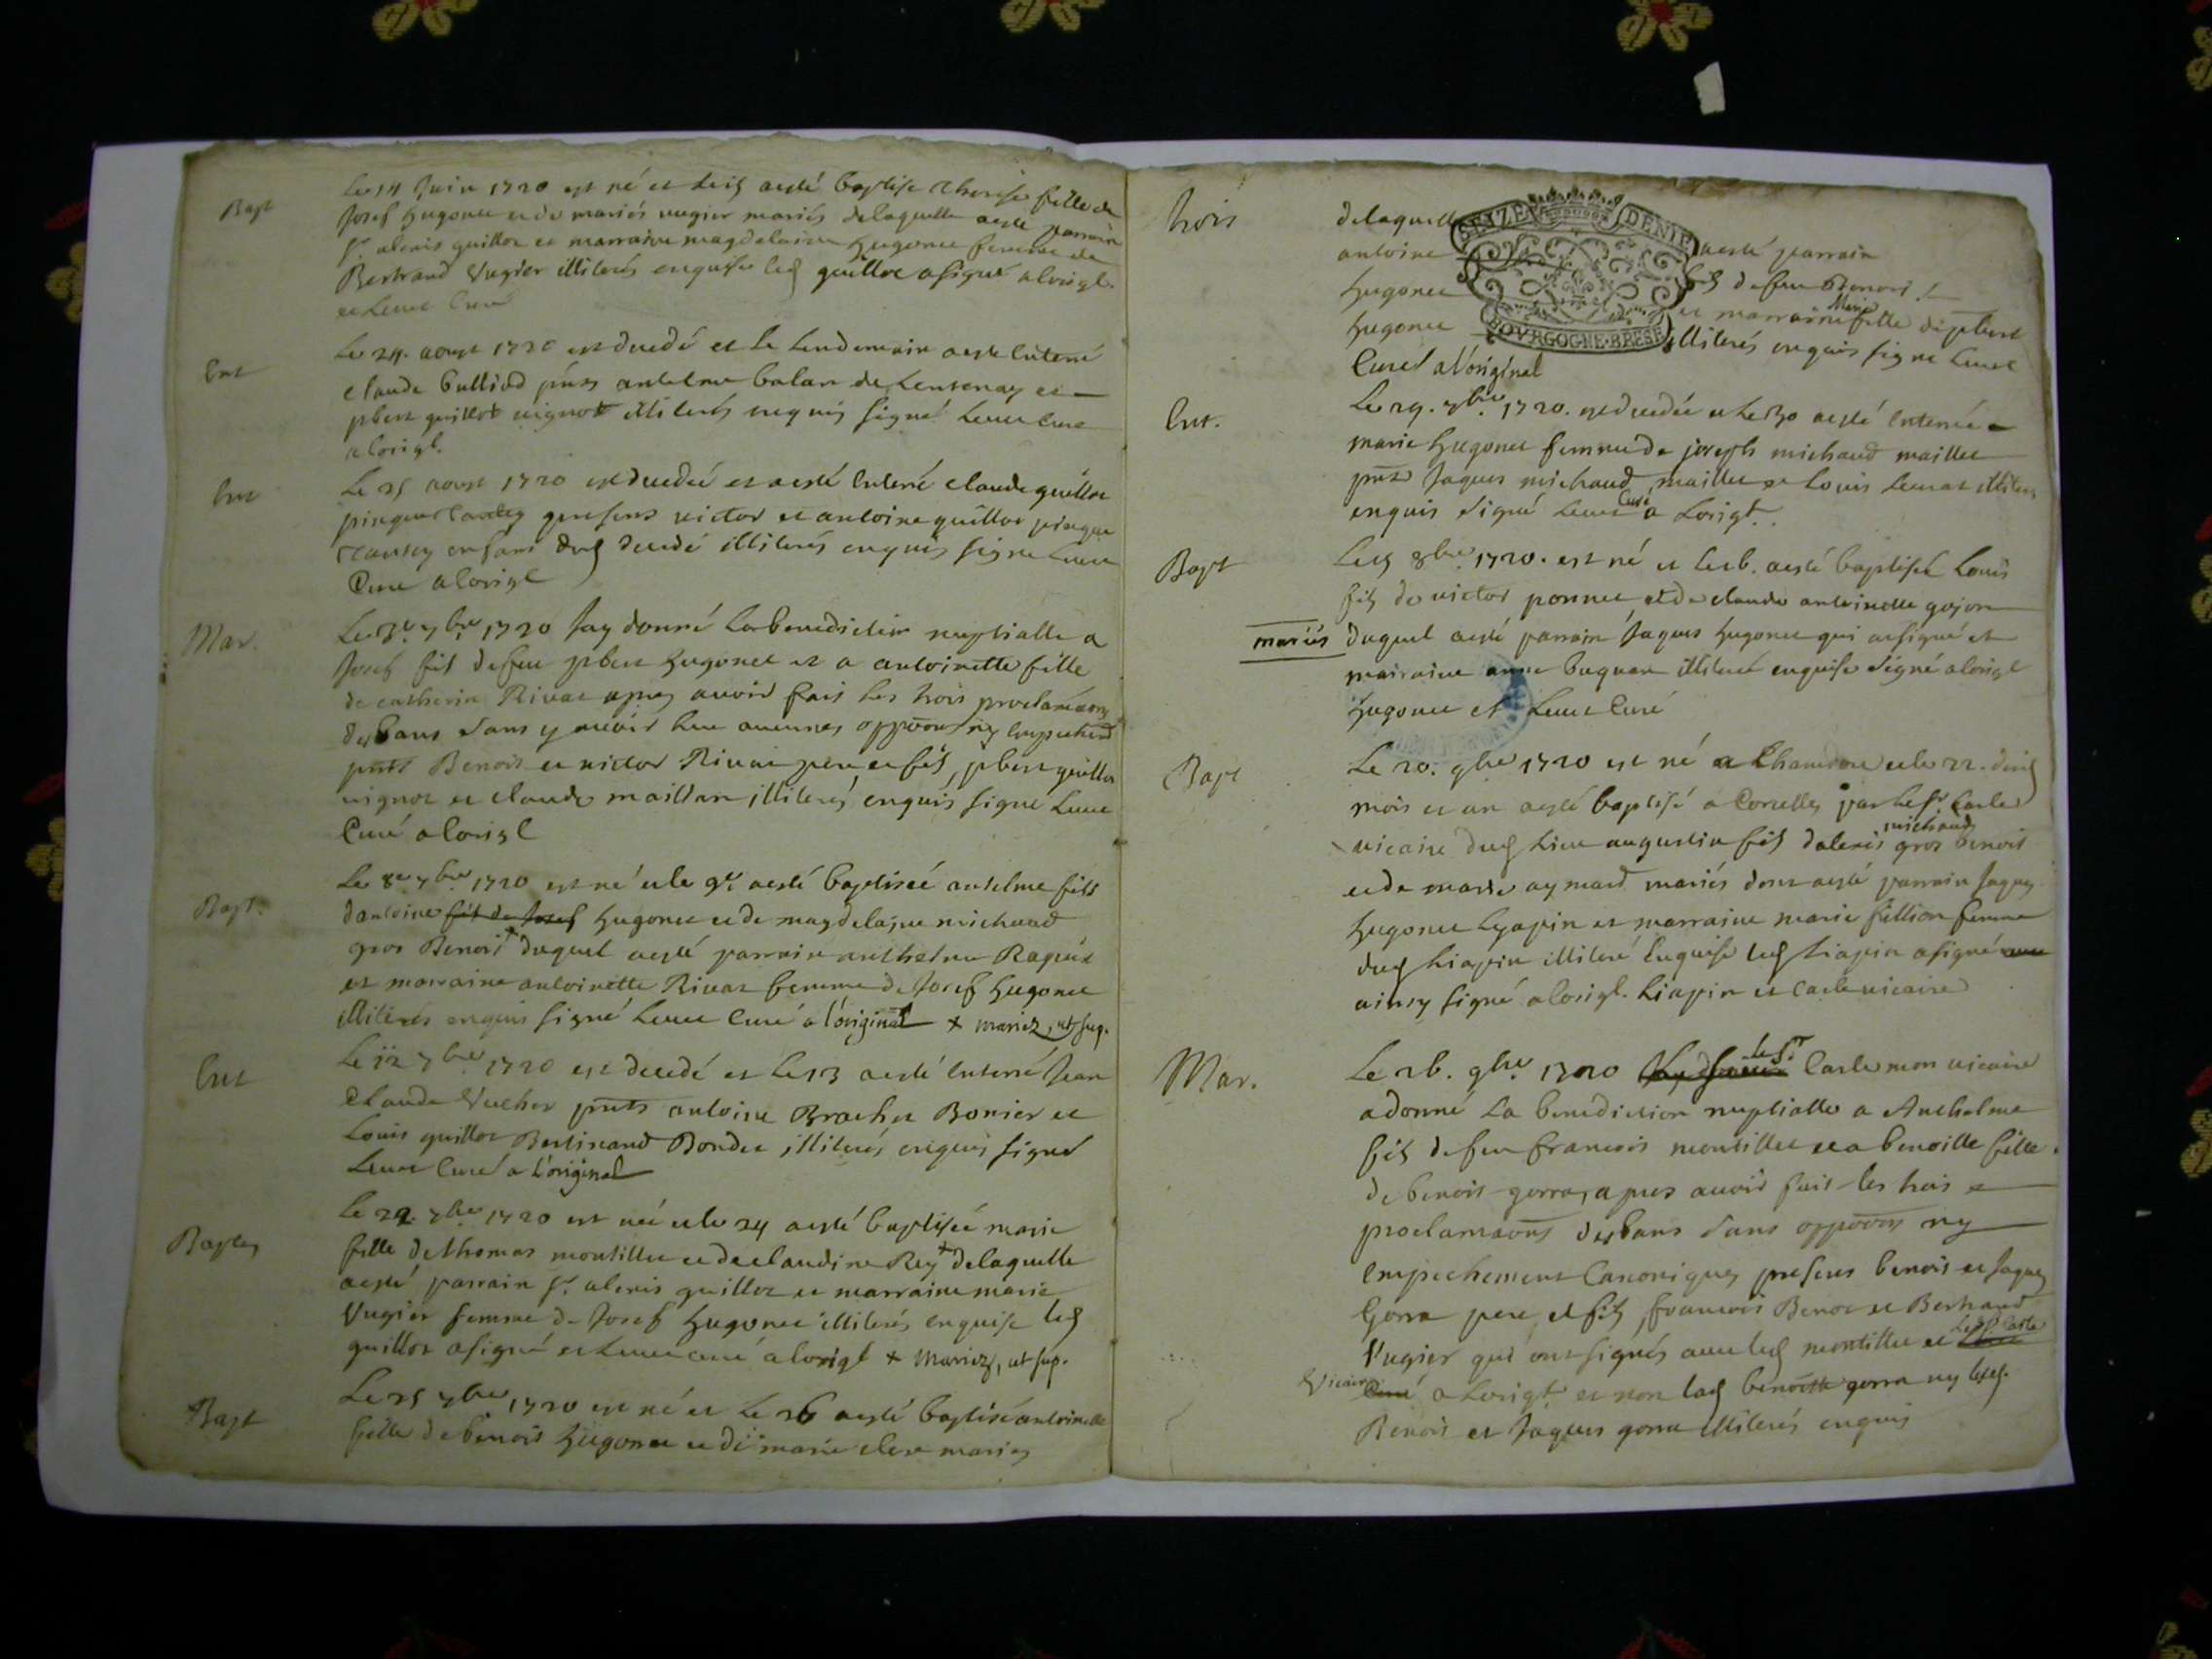 Bapt
Le 14 Juin 1720 est né et le 15 aesté baptise Therese fille de
Josef hugonet et de mariés vugier mariés delaquelle aesté parrain
Sr. alexis guillot et marraine magdelaine hugonet femme de
Bertrand Vugier illiterés enquise led guillot asigné alorigl.
et Curé
Ent
Le 24. aoust 1720 est decedé et le lendemain aesté Enterré
claude pnts antelme balan de et
pbert guillot vignot illiterés enquis signé Curé
alorigl.
Ent
Le 25 aoust 1720 est decedé et aesté Enterré claude guillot
presens victor et antoine guillot
enfans dud decedé illiterés enquis signe
Curé alorigl
Mar.
Le 7bre 1720 Jay donné la benediction nuptialle a
Josef fils defeu pbert hugonet et a antoinette fille
de Rivat apres avoir fait les trois proclamaons
des bans sans y avoir heu aucunes oppoons ny empechemt
pnts Benoit et victor Rivat pere et fils, pbert guillot
vignot et claude maillan illiterés enquis signé
Curé alorigl
Bapt.
Le 8e 7bre 1720 est né et le 9e aesté baptisé antelme fils
dantoine fils de Josef hugonet et de magdelaine michaud
gros Benoit + duquel aesté parrain anthelme Rapin
et marraine antoinette Rivat femme de Josef hugonet
illiterés enquis signé Curé a l'original + mariez, ut sup.
Ent
Le 12 7bre 1720 est decedé et le 13 aesté enterré Jean
Claude Vucher pnts antoine Brachet Bonier et
Louis guillot Bondet illiterés enquis signé
Curé a l'original
Le 22. 7bre 1720 est née et le 24 aesté baptisée marie
fille de thomas montillet et de claudine Rey + delaquelle
aesté parrain Sr. alexis guillot et marraine marie
Vugier femme de Josef hugonet illiterés enquise led
guillot asigné et curé alorigl + Mariez, ut sup.
Bapt
Le 25 7bre 1720 est né et le 26 aesté baptisé antoinette
fille de benoit hugonet et de marie clere mariés
trois
delaquelle SEIZE DENIE aesté parrain
antoine fils defeu Benoit
hugonet et marraine Marie fille de pbert
hugonet BOVRGOGNE·BRESSE illiterés enquis signe
Curé al'original
Ent.
Le 29. 7bre 1720. est decedée et le 30 aesté Enterrée
marie hugonet femme de joseph michaud maillet
pnts Jaques michaud maillet et Louis illiterés
enquis signé Curé a Lorigl.
Bapt
Le 5 8bre 1720. est né et le 6. aesté baptisé Louis
fils de victor ponnet et de claude antoinette gojon
mariés duquel aesté parrain Jaques hugonet qui asigné et
mairaine anne illiteré enquise signé alorigl
hugonet et Curé
Bapt
Le 20. 9bre 1720 est né a Chamdore et le 22. dud
mois et an aesté baptisé a Corcelles par le Sr. Carle
vicaire dud lieu augustin fils dalexis michaud gros benoit
et de marie aymard mariés dont aesté parrain Jaques
hugonet Lyapin et marraine marie fillion femme
dud Liapin illiteré Enquise led Liapin asigné
ainsy signé alorigl. Liapin et Carle vicaire
Mar.
Le 26. 9bre 1720 le Sr Carle mon vicaire
adonné La benediction nuptialle a Anthelme
fils defeu francois montillet et a benoitte fille
de benoit gorra, apres avoir fait les trois
proclamaons des bans sans oppoons ny
empechement Canoniques presens benoit et Jaques
Gorra pere et fils, francois Benoit et Bertrand
Vugier qui ont signés avec led montillet et led Sr Carle
Vicaire Curé a Lorigl. et non lad benoitte gorra ny lesd.
Benoit et Jaques gorra illiterés enquis